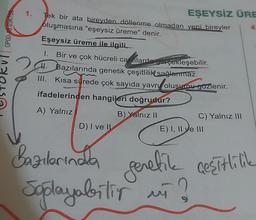 EŞEYSİZ ÜRE
1. Tek bir ata bireyden döllenme olmadan yeni bireyler
oluşmasına "eşeysiz üreme" denir.
Eşeysiz üreme ile ilgili,
I. Bir ve çok hücreli canlılarda gerçekleşebilir.
II. Bazılarında genetik çeşitlilik sağlanmaz.
III. Kısa sürede çok sayıda yavru oluşumu gözlenir.
ifadelerinden hangileri doğrudur?
A) Yalnız I
B) Yalnız II
C) Yalnız III
D) I ve II
E) I, II ve III
Bazılarında genetik çeşitlilik
Sağlayabilir mi ?